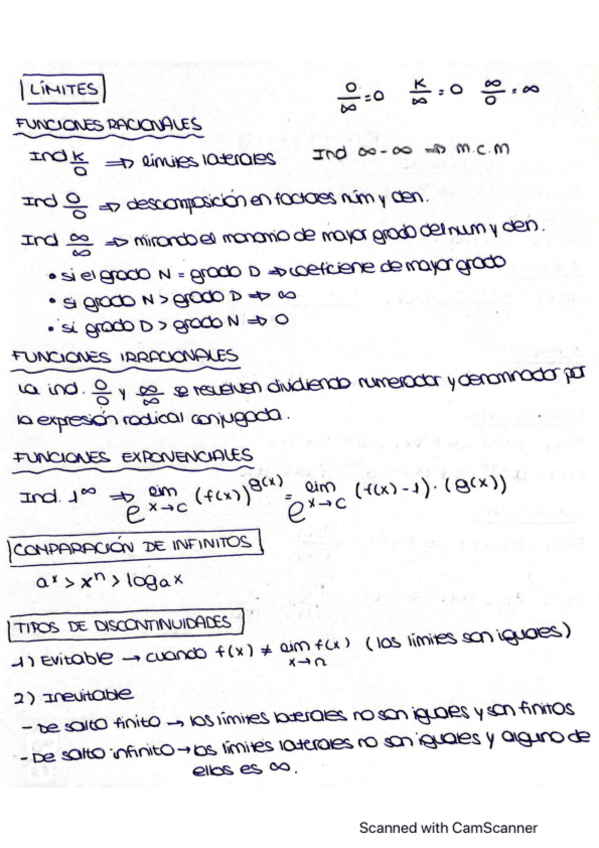 LÍMITES
0/∞ = 0   K/∞ = 0   ∞/0 = ∞
FUNCIONES RACIONALES
Ind K/0 ⇒ límites laterales   Ind ∞-∞ ⇒ m.c.m
Ind 0/0 ⇒ descomposición en factores núm y den.
Ind ∞/∞ ⇒ mirando el monomio de mayor grado del num y den.
• si el grado N = grado D ⇒ coeficiene de mayor grado
• si grado N > grado D ⇒ ∞
• si grado D > grado N ⇒ 0
FUNCIONES IRRACIONALES
La ind. 0/0 y ∞/∞ se resuelven dividiendo numerador y denominador por
la expresión radical conjugada.
FUNCIONES EXPONENCIALES
Ind. 1^∞ ⇒ e^lim x→c (f(x))^g(x) = e^lim x→c (f(x)-1)·(g(x))
COMPARACIÓN DE INFINITOS
aˣ > xⁿ > logax
TIPOS DE DISCONTINUIDADES
1) Evitable → cuando f(x) ≠ lim x→n f(x) (los límites son iguales)
2) Inevitable
- De salto finito → los límites laterales no son iguales y son finitos
- De salto infinito → los límites laterales no son iguales y alguno de
ellos es ∞.
Scanned with CamScanner